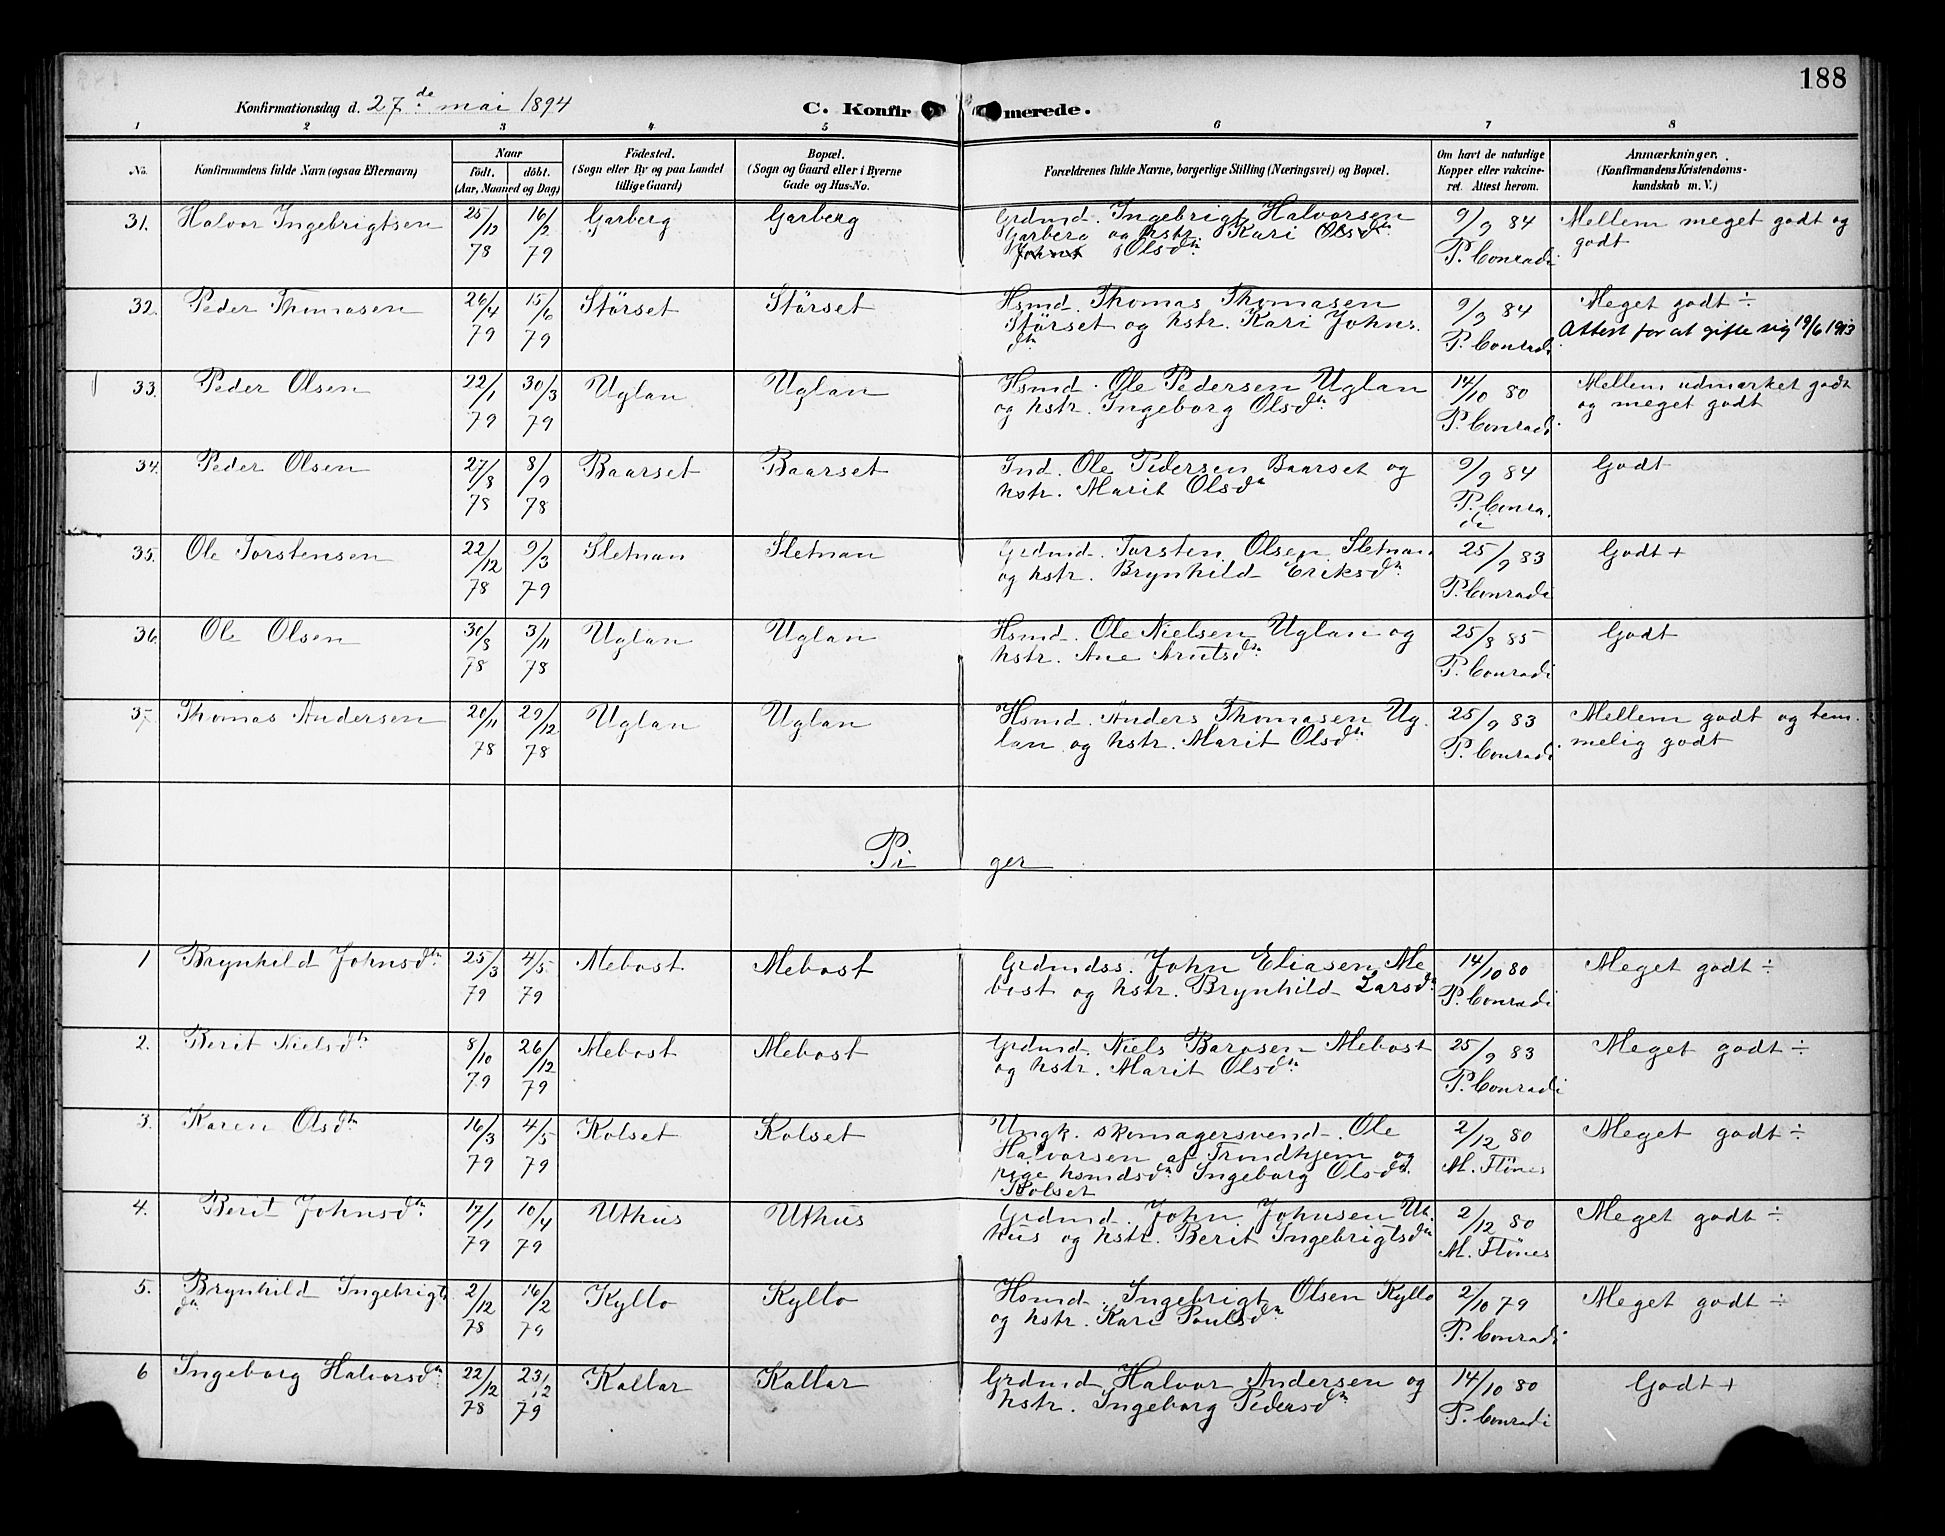 188
Konfirmationsdag d. 27de mai 1894
C. Konfirmerede.
1 2 3 4 5 6 7 8
No. Konfirmandens fulde Navn (ogsaa Efternavn) Naar født. døbt. (Aar, Maaned og Dag) Fødested. (Sogn eller By og paa Landet tillige Gaard) Bopæl. (Sogn og Gaard eller i Byerne Gade og Hus-No. Forældrenes fulde Navne, borgerlige Stilling (Næringsvei) og Bopæl. Om havt de naturlige Kopper eller vaccineret. Attest herom. Anmærkninger. (Konfirmandens Kristendomskundskab m. V.)
31. Halvor Ingebrigtsen 25/12 78 16/2 79 Garberg Garberg
Grdmd. Ingebrigt Halvorsen
Garberg og hstr. Kari Olsdtr
Olsdtr
9/9 84 P. Conradi
Mellem meget godt og
godt
32. Peder Thomasen 26/4 79 15/6 79 Störset Störset
Hsmd. Thomas Thomasen
Störset og hstr. Kari Johns.
dtr
9/9 84 P. Conradi
Meget godt ÷
Attest for at gifte sig 19/6 1913
33. Peder Olsen 22/1 79 30/3 79 Uglan Uglan
Hsmd. Ole Pedersen Uglan
og hstr. Ingeborg Olsdtr
14/10 80 P. Conradi
Mellem udmærket godt
og meget godt
34. Peder Olsen 27/8 78 8/9 78 Baarset Baarset
Ind. Ole Pedersen Baarset og
hstr. Marit Olsdtr
9/9 84 P. Conra.
di
Godt
35. Ole Torstensen 22/12 78 9/3 79 Sletnan Sletnan
Grdmd. Torsten Olsen Sletnan
og hstr. Brynhild Eriksdtr
25/9 83 P. Conradi
Godt +
36. Ole Olsen 30/8 78 3/11 78 Uglan Uglan
Hsmd. Ole Nielsen Uglan og
hstr. Ane Arntsdtr
25/8 85 P. Conradi
Godt
37 Thomas Andersen 20/11 78 29/12 78 Uglan Uglan
Hsmd. Anders Thomasen Ug.
lan og hstr. Marit Olsdtr
25/9 83 P. Conradi
Mellem godt og tem.
melig godt
Piger
1 Brynhild Johnsdtr 25/3 79 4/5 79 Mebost Mebost
Grdmdss. John Eliasen Me
bost og hstr. Brynhild Larsdtr
14/10 80 P. Conradi
Meget godt ÷
2. Berit Nielsdtr 8/10 79 26/12 79 Mebost Mebost
Grdmd. Niels Barosen Mebost
og hstr. Marit Olsdtr
25/9 83 P. Conradi
Meget godt ÷
3. Karen Olsdtr 16/3 79 4/5 79 Kolset Kolset
Ungk. skomagersvend Ole
Halvorsen af Trondhjem og
pige hsmdsdtr Ingeborg Olsdtr
Kolset
2/12 80 M. Flönes
Meget godt ÷
4. Berit Johnsdtr 17/1 79 10/4 79 Uthus Uthus
Grdmd. John Johnsen Ut.
hus og hstr. Berit Ingebrigtsdtr
2/12 80 M. Flönes
Meget godt ÷
5. Brynhild Ingebrigts
dtr 2/12 78 16/2 79 Kyllo Kyllo
Hsmd. Ingebrigt Olsen Kyllo
og hstr. Kari Poulsdtr
2/10 79 P. Conradi
Meget godt ÷
6 Ingeborg Halvorsdtr 22/12 78 23/12 79 Kallar Kallar
Grdmd Halvor Andersen og
hstr. Ingeborg Pedersdtr
14/10 80 P. Conradi
Godt +